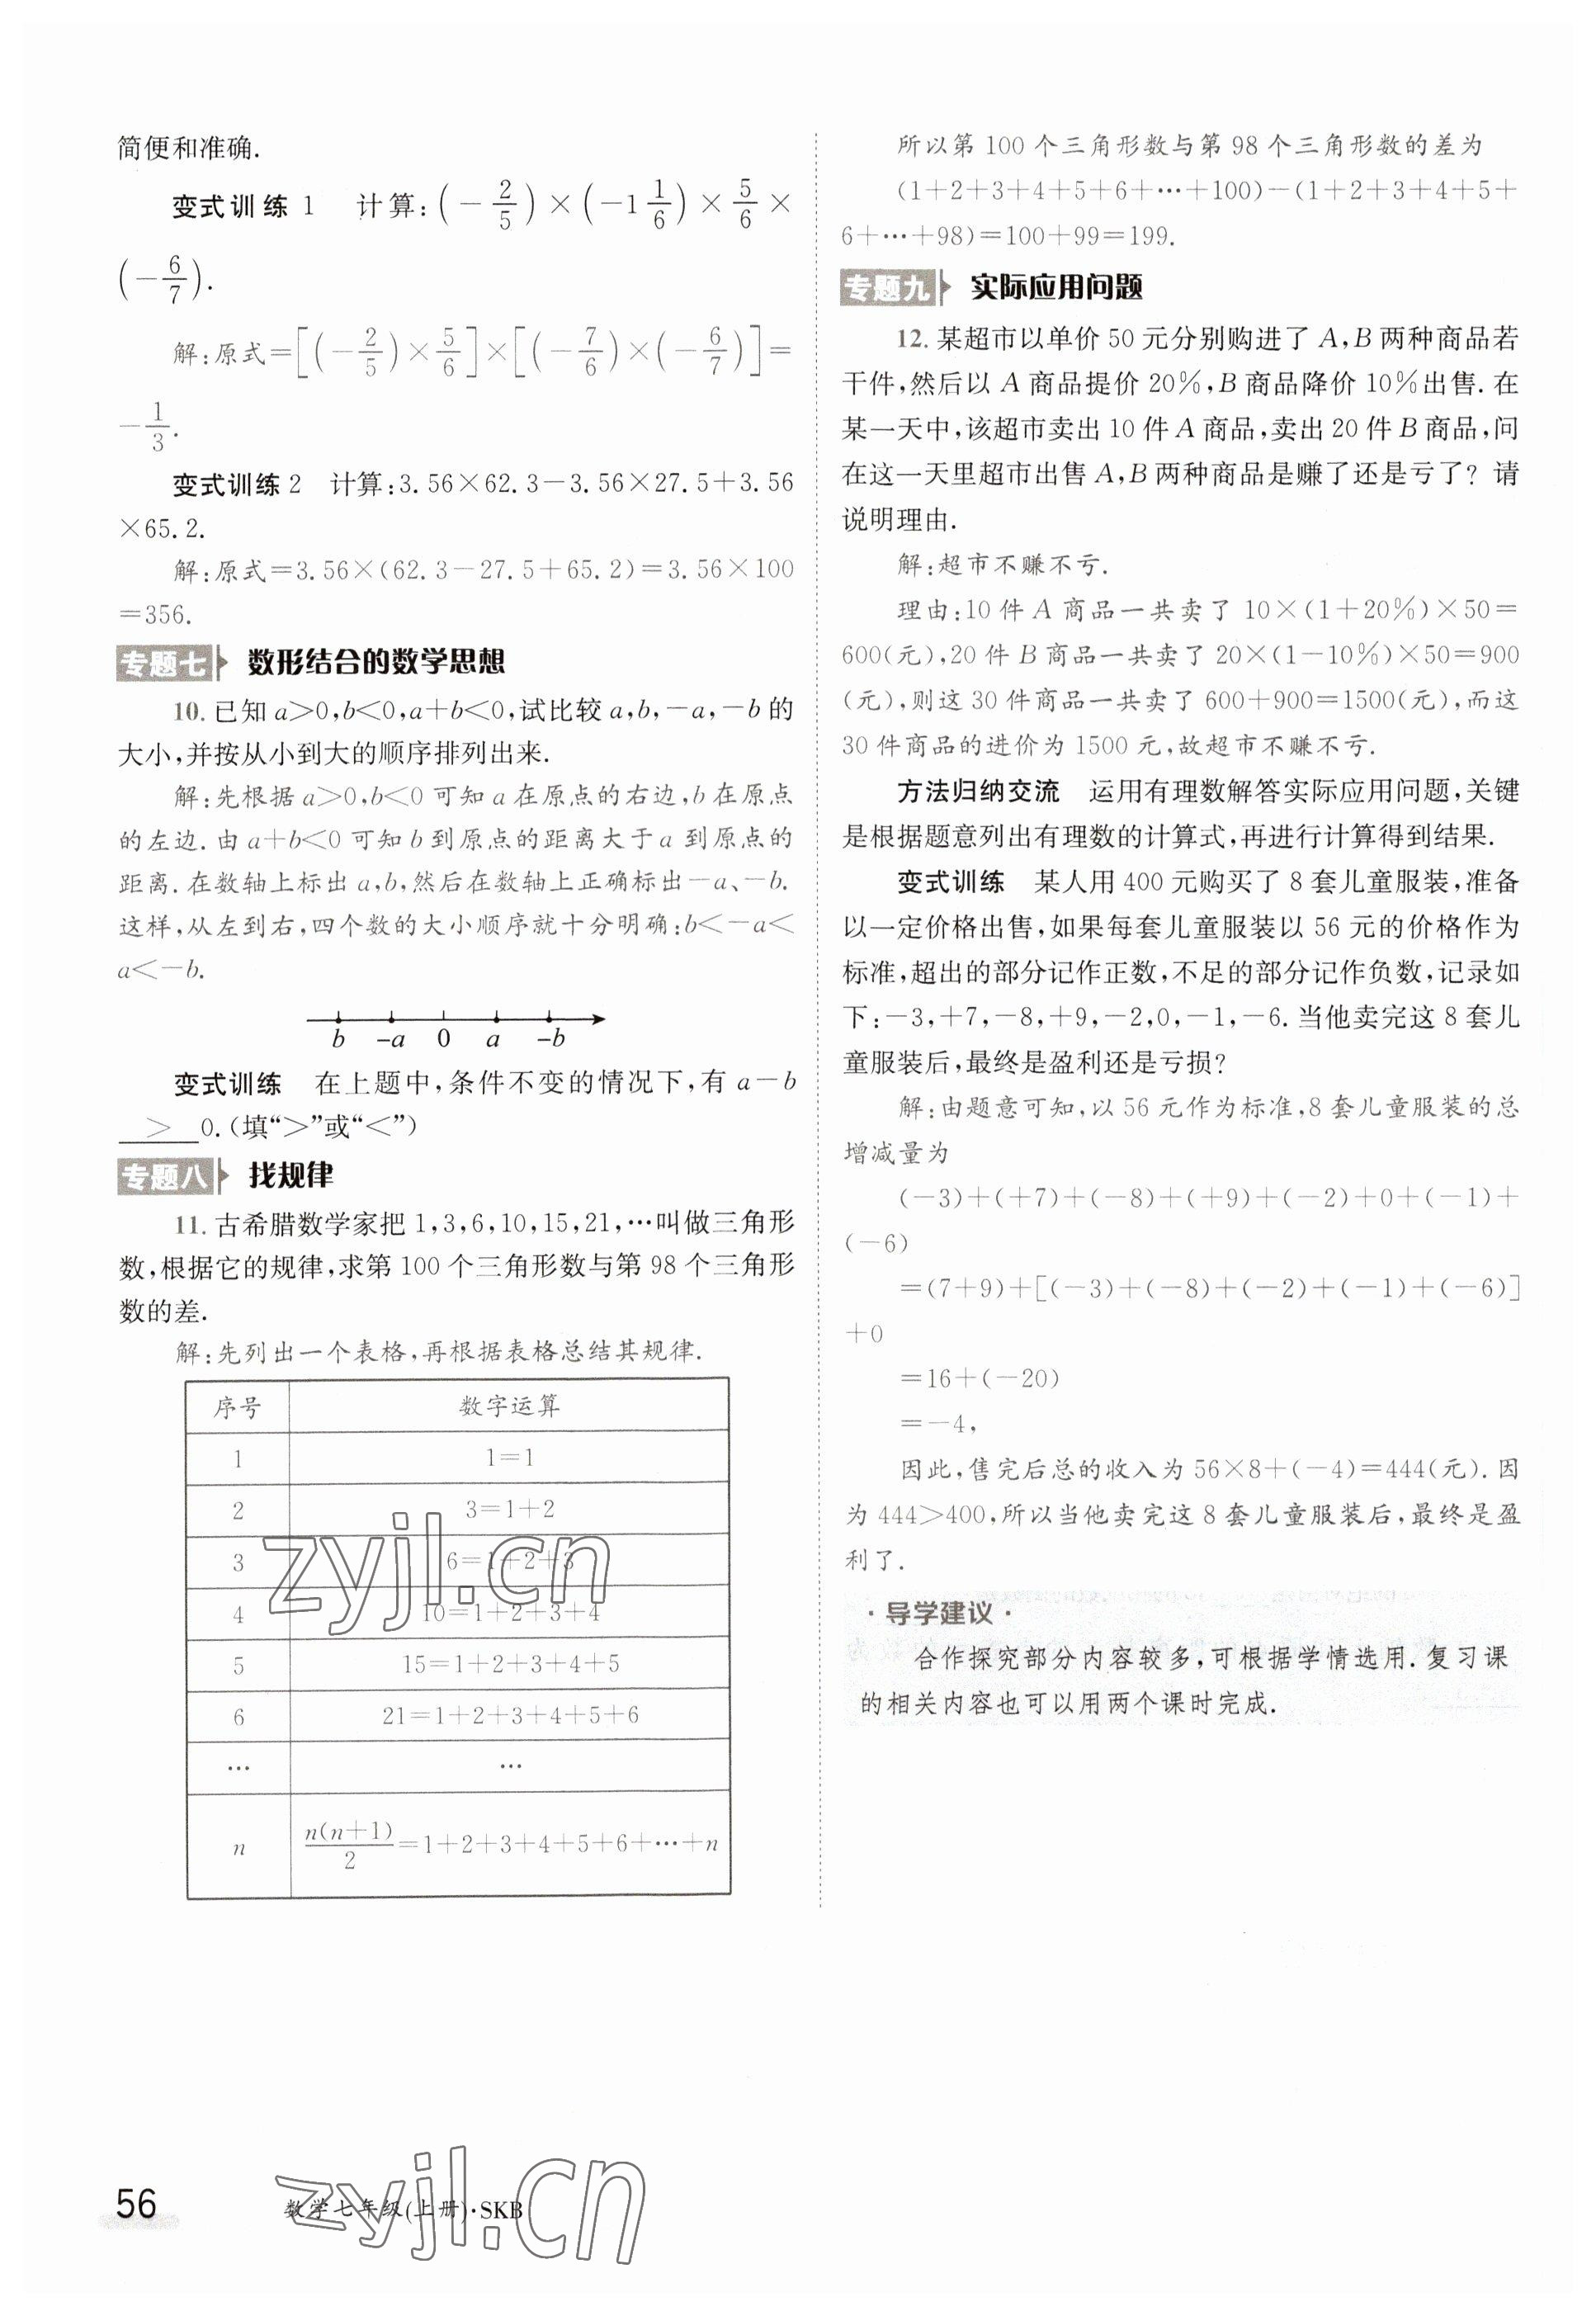 简便和准确.
变式训练1 计算:(−2/5)×(−1 1/6)×5/6×
(−6/7).
解:原式=[(−2/5)×5/6]×[(−7/6)×(−6/7)]=
−1/3.
变式训练2 计算:3.56×62.3−3.56×27.5+3.56
×65.2.
解:原式=3.56×(62.3−27.5+65.2)=3.56×100
=356.
专题七 数形结合的数学思想
10.已知a>0,b<0,a+b<0,试比较a,b,−a,−b的
大小,并按从小到大的顺序排列出来.
解:先根据a>0,b<0可知a在原点的右边,b在原点
的左边.由a+b<0可知b到原点的距离大于a到原点的
距离.在数轴上标出a,b,然后在数轴上正确标出−a、−b.
这样,从左到右,四个数的大小顺序就十分明确:b<−a<
a<−b.
b −a 0 a −b
变式训练 在上题中,条件不变的情况下,有a−b
> 0.(填“>”或“<”)
专题八 找规律
11.古希腊数学家把1,3,6,10,15,21,…叫做三角形
数,根据它的规律,求第100个三角形数与第98个三角形
数的差.
解:先列出一个表格,再根据表格总结其规律.
序号 数字运算
1 1=1
2 3=1+2
3 6=1+2+3
4 10=1+2+3+4
5 15=1+2+3+4+5
6 21=1+2+3+4+5+6
… …
n n(n+1)/2=1+2+3+4+5+6+…+n
zyjl.cn
所以第100个三角形数与第98个三角形数的差为
(1+2+3+4+5+6+…+100)−(1+2+3+4+5+
6+…+98)=100+99=199.
专题九 实际应用问题
12.某超市以单价50元分别购进了A,B两种商品若
干件,然后以A商品提价20%,B商品降价10%出售.在
某一天中,该超市卖出10件A商品,卖出20件B商品,问
在这一天里超市出售A,B两种商品是赚了还是亏了?请
说明理由.
解:超市不赚不亏.
理由:10件A商品一共卖了10×(1+20%)×50=
600(元),20件B商品一共卖了20×(1−10%)×50=900
(元),则这30件商品一共卖了600+900=1500(元),而这
30件商品的进价为1500元,故超市不赚不亏.
方法归纳交流 运用有理数解答实际应用问题,关键
是根据题意列出有理数的计算式,再进行计算得到结果.
变式训练 某人用400元购买了8套儿童服装,准备
以一定价格出售,如果每套儿童服装以56元的价格作为
标准,超出的部分记作正数,不足的部分记作负数,记录如
下:−3,+7,−8,+9,−2,0,−1,−6.当他卖完这8套儿
童服装后,最终是盈利还是亏损?
解:由题意可知,以56元作为标准,8套儿童服装的总
增减量为
(−3)+(+7)+(−8)+(+9)+(−2)+0+(−1)+
(−6)
=(7+9)+[(−3)+(−8)+(−2)+(−1)+(−6)]
+0
=16+(−20)
=−4,
因此,售完后总的收入为56×8+(−4)=444(元).因
为444>400,所以当他卖完这8套儿童服装后,最终是盈
利了.
·导学建议·
合作探究部分内容较多,可根据学情选用.复习课
的相关内容也可以用两个课时完成.
56 数学七年级(上册)·SKB
zyjl.cn